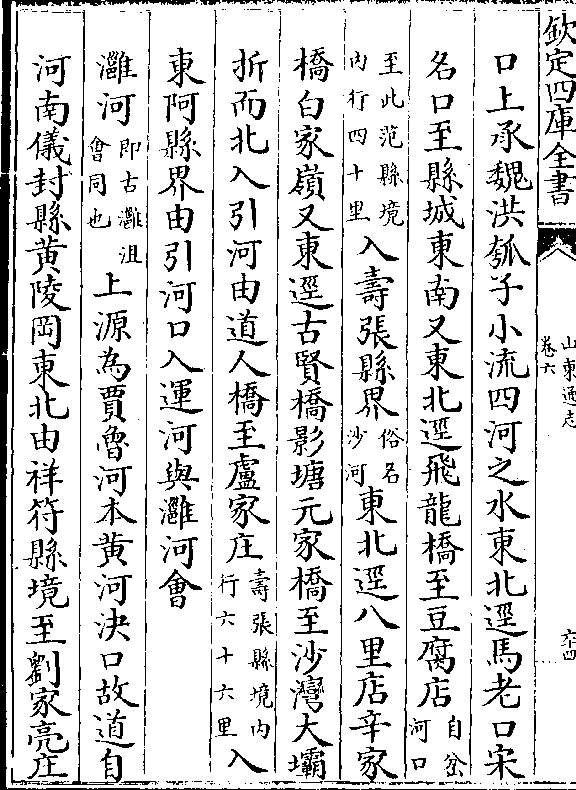 欽定四庫全書
山東通志
卷六
六四
口上承魏洪瓠子小流四河之水東北逕馬老口宋
名口至縣城東南又東北逕飛龍橋至豆腐店自岔河口
至此范縣境内行四十里入壽張縣界俗名沙河東北逕八里店辛家
橋白家嶺又東逕古賢橋影塘元家橋至沙灣大壩
折而北入引河由道人橋至盧家庄壽張縣境内行六十六里入
東阿縣界由引河口入運河與灉河會
灉河即古灉沮會同也上源為賈魯河本黄河決口故道自
河南儀封縣黄陵岡東北由祥符縣境至劉家亮庄